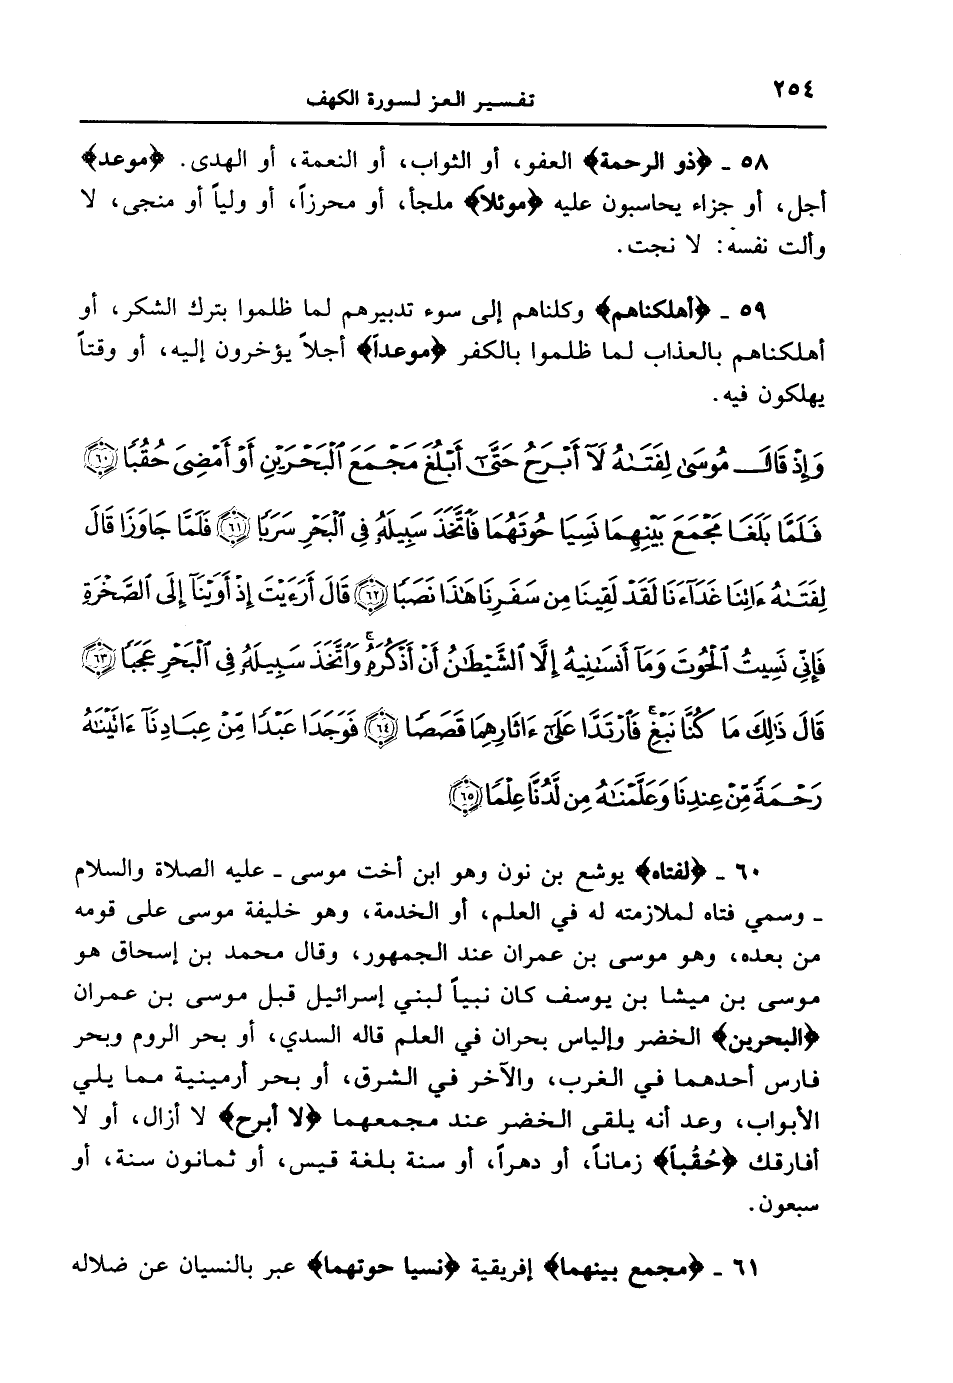 ٢٥٤
تفسير العز لسورة الكهف
٥٨ ـ ﴿ذو الرحمة﴾ العفو، أو الثواب، أو النعمة، أو الهدى. ﴿موعد﴾
أجل، أو جزاء يحاسبون عليه ﴿موئلاً﴾ ملجأ، أو محرزاً، أو ولياً أو منجى، لا
وألت نفسه: لا نجت.
٥٩ ـ ﴿أهلكناهم﴾ وكلناهم إلى سوء تدبيرهم لما ظلموا بترك الشكر، أو
أهلكناهم بالعذاب لما ظلموا بالكفر ﴿موعداً﴾ أجلاً يؤخرون إليه، أو وقتاً
يهلكون فيه.
وَإِذْ قَالَ مُوسَىٰ لِفَتَىٰهُ لَآ أَبْرَحُ حَتَّىٰٓ أَبْلُغَ مَجْمَعَ ٱلْبَحْرَيْنِ أَوْ أَمْضِىَ حُقُبًا ﴿٦٠﴾
فَلَمَّا بَلَغَا مَجْمَعَ بَيْنِهِمَا نَسِيَا حُوتَهُمَا فَٱتَّخَذَ سَبِيلَهُۥ فِى ٱلْبَحْرِ سَرَبًا ﴿٦١﴾ فَلَمَّا جَاوَزَا قَالَ
لِفَتَىٰهُ ءَاتِنَا غَدَآءَنَا لَقَدْ لَقِينَا مِن سَفَرِنَا هَٰذَا نَصَبًا ﴿٦٢﴾ قَالَ أَرَءَيْتَ إِذْ أَوَيْنَآ إِلَى ٱلصَّخْرَةِ
فَإِنِّى نَسِيتُ ٱلْحُوتَ وَمَآ أَنسَىٰنِيهُ إِلَّا ٱلشَّيْطَٰنُ أَنْ أَذْكُرَهُۥ وَٱتَّخَذَ سَبِيلَهُۥ فِى ٱلْبَحْرِ عَجَبًا ﴿٦٣﴾
قَالَ ذَٰلِكَ مَا كُنَّا نَبْغِ فَٱرْتَدَّا عَلَىٰٓ ءَاثَارِهِمَا قَصَصًا ﴿٦٤﴾ فَوَجَدَا عَبْدًا مِّنْ عِبَادِنَآ ءَاتَيْنَٰهُ
رَحْمَةً مِّنْ عِندِنَا وَعَلَّمْنَٰهُ مِن لَّدُنَّا عِلْمًا ﴿٦٥﴾
٦٠ ـ ﴿لفتاه﴾ يوشع بن نون وهو ابن أخت موسى ـ عليه الصلاة والسلام
ـ وسمي فتاه لملازمته له في العلم، أو الخدمة، وهو خليفة موسى على قومه
من بعده، وهو موسى بن عمران عند الجمهور، وقال محمد بن إسحاق هو
موسى بن ميشا بن يوسف كان نبياً لبني إسرائيل قبل موسى بن عمران
﴿البحرين﴾ الخضر وإلياس بحران في العلم قاله السدي، أو بحر الروم وبحر
فارس أحدهما في الغرب، والآخر في الشرق، أو بحر أرمينية مما يلي
الأبواب، وعد أنه يلقى الخضر عند مجمعهما ﴿لا أبرح﴾ لا أزال، أو لا
أفارقك ﴿حُقُباً﴾ زماناً، أو دهراً، أو سنة بلغة قيس، أو ثمانون سنة، أو
سبعون.
٦١ ـ ﴿مجمع بينهما﴾ إفريقية ﴿نسيا حوتهما﴾ عبر بالنسيان عن ضلاله